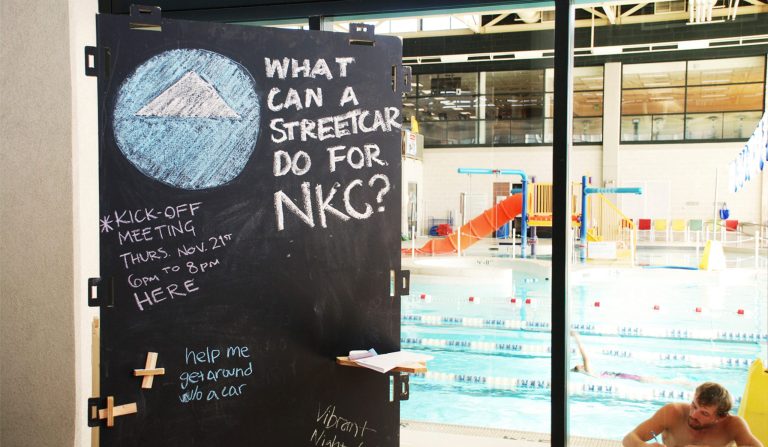 WHAT
CAN A
STREETCAR
DO FOR
NKC?
*KICK-OFF
MEETING
THURS. NOV. 21ST
6PM TO 8PM
HERE
help me
get around
w/o a car
Vibrant